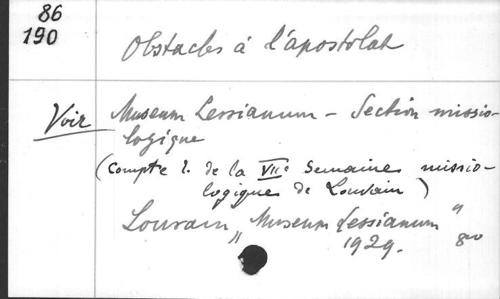 86
190
Obstacles à l'apostolat
Voir Museum Lessianum - Section missio-
logique
(Compte r. de la VIIe Semaine missio-
logique de Louvain)
Louvain, Museum Lessianum
" 1929. 8vo